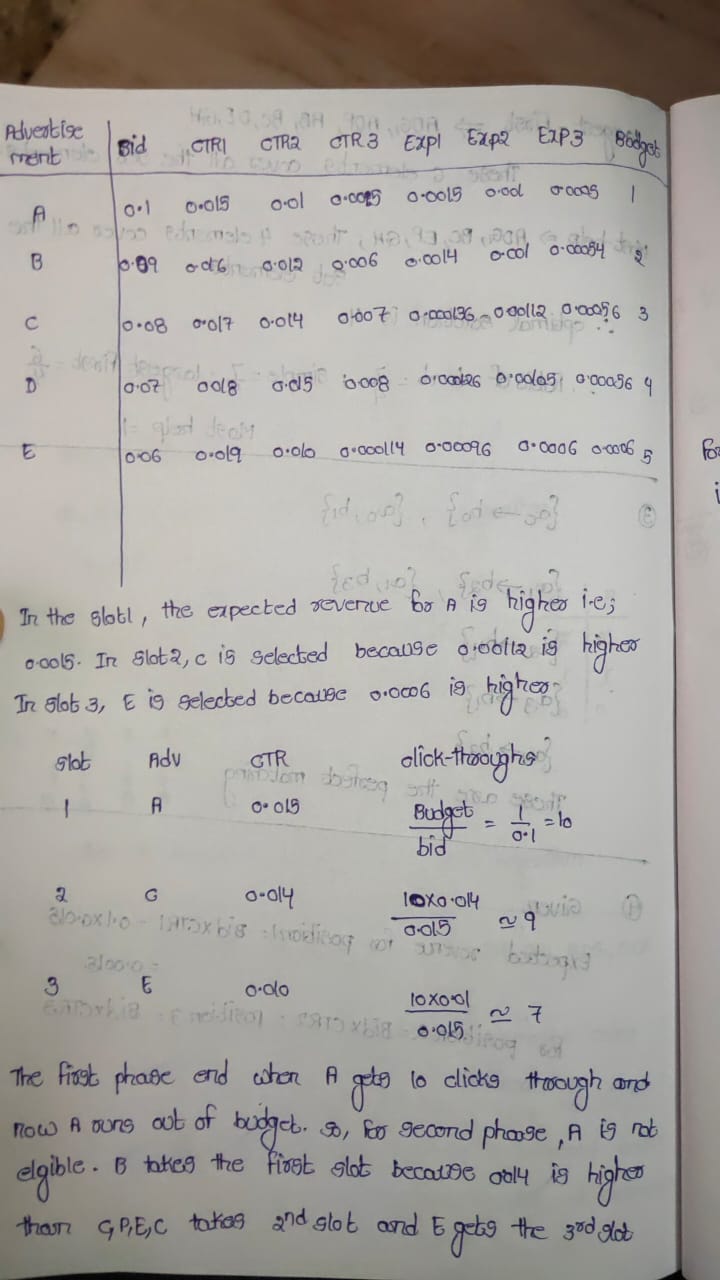 Advertise Bid CTR1 CTR2 CTR3 Exp1 Exp2 EXP3 Budget
ment
A 0.1 0.015 0.01 0.0015 0.001 1
B 0.09 0.016 0.012 0.006 0.0014 0.001 0.00054 2
C 0.08 0.017 0.014 0.007 0.000136 0.00112 0.00056 3
D 0.07 0.018 0.015 0.008 0.00105 0.00056 4
E 0.06 0.019 0.010 0.000114 0.00096 0.0006 0.0006 5
In the slot1, the expected revenue for A is higher i.e;
0.0015. In slot2, C is selected because 0.00112 is higher
In slot 3, E is selected because 0.0006 is higher.
slot Adv CTR click-throughs
1 A 0.015 Budget/bid = 1/0.1 = 10
2 C 0.014 10x0.014/0.015 ≃ 9
3 E 0.010 10x0.01/0.015 ≃ 7
The first phase end when A gets 10 clicks through and
now A runs out of budget. so, for second phase, A is not
elgible. B takes the first slot because 0014 is higher
than C,D,E,C takes 2nd slot and E gets the 3rd slot